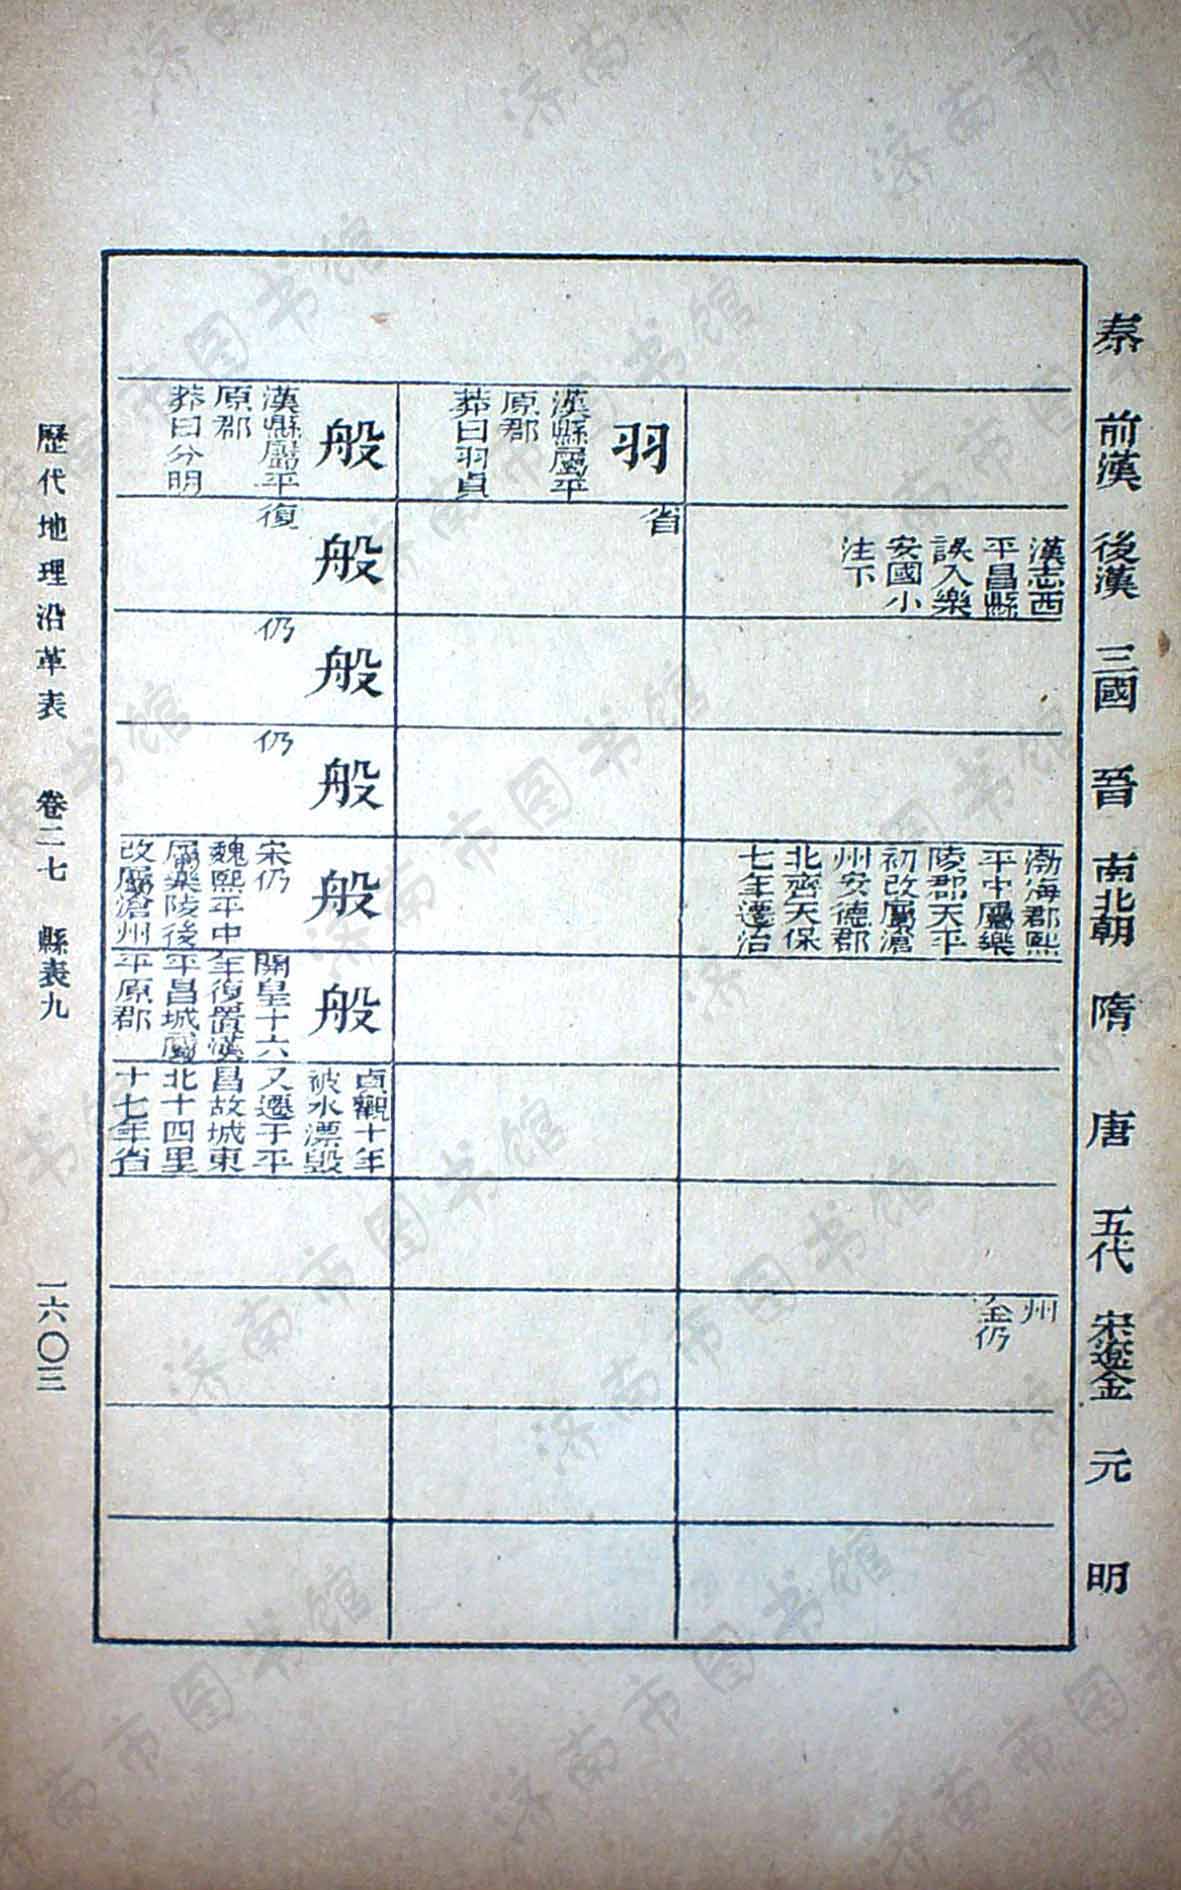 秦 前漢 後漢 三國 晉 南北朝 隋 唐 五代 宋遼金 元 明
漢志西
平昌縣
誤入樂
安國小
注下
渤海郡熙
平中屬樂
陵郡天平
初改屬滄
州安德郡
北齊天保
七年遷治
州
金仍
羽
漢縣屬平
原郡
莽曰羽貞
省
般
漢縣屬平
原郡
莽曰分明
般
復
般
仍
般
仍
般
宋仍
魏熙平中
屬樂陵後
改屬滄州
般
開皇十六
年復置漢
平昌城屬
平原郡
貞觀十年
被水漂毀
又遷于平
昌故城東
北十四里
十七年省
歷代地理沿革表 卷二七 縣表九 一六〇三
济南市图书馆